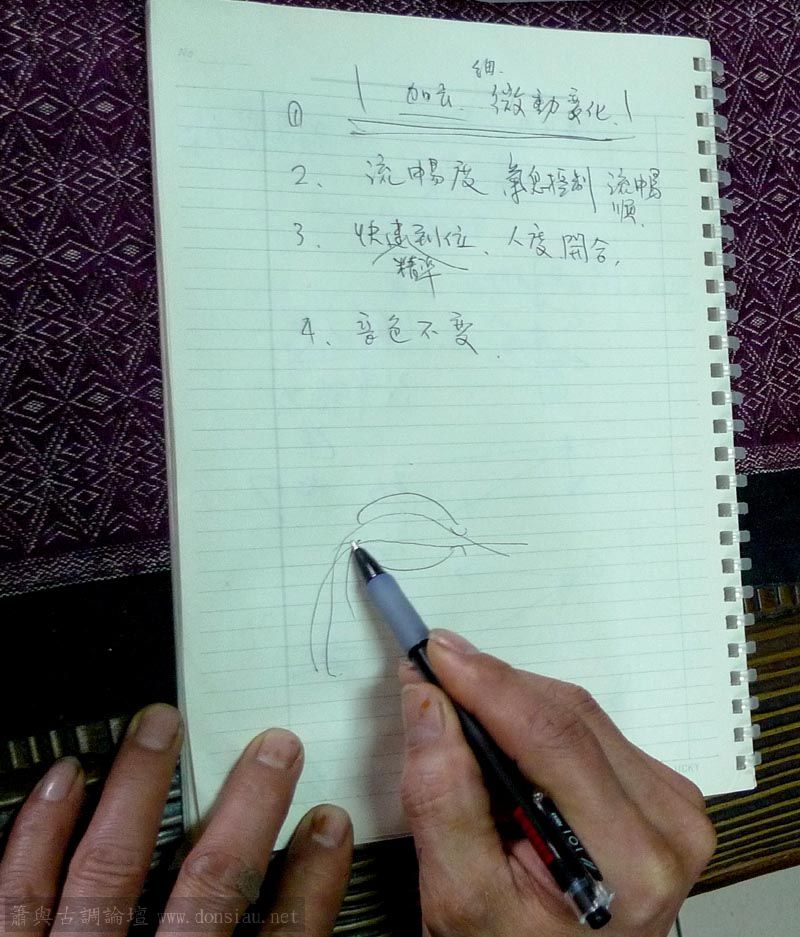 No
細.
① 微動變化.
2、流暢度 氣息控制 流暢
順.
3. 快速到位、人度開合,
精準
4、音色不變.
101
簫與古調論壇 www.donsiau.net